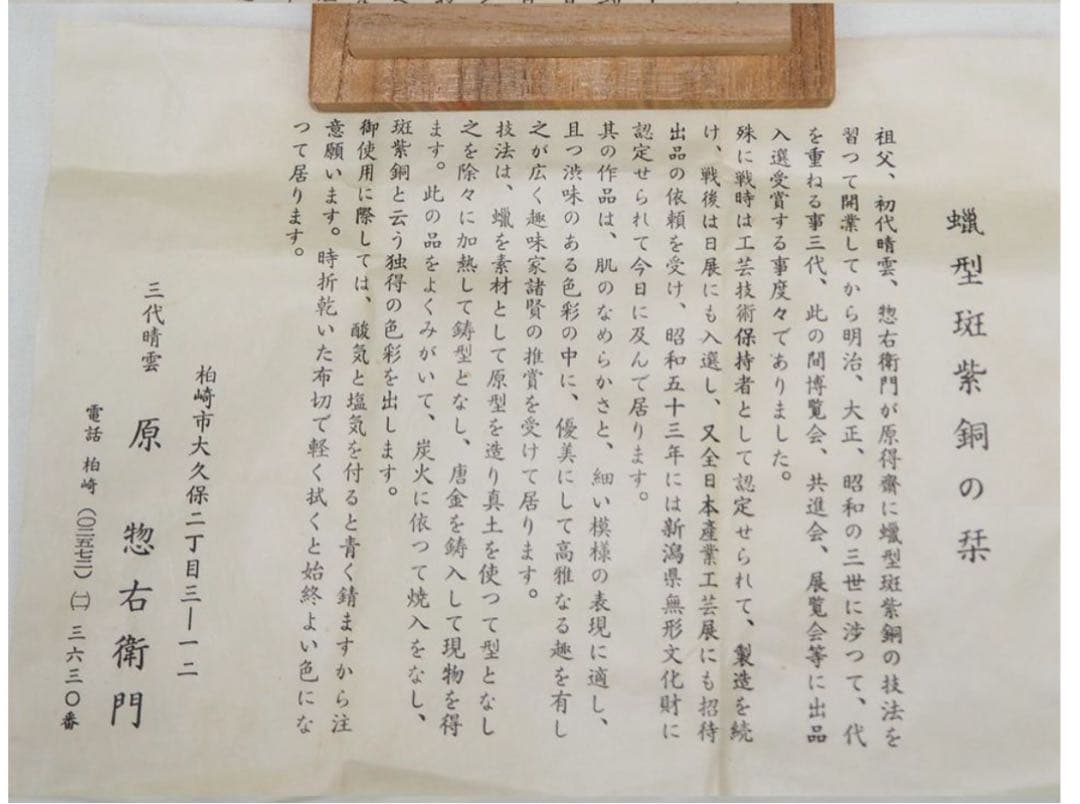 蠟型斑紫銅の栞
祖父、初代晴雲、惣右衛門が原得齋に蠟型斑紫銅の技法を
習つて開業してから明治、大正、昭和の三世に渉つて、代
を重ねる事三代、此の間博覧会、共進会、展覧会等に出品
入選受賞する事度々でありました。
殊に戦時は工芸技術保持者として認定せられて、製造を続
け、戦後は日展にも入選し、又全日本産業工芸展にも招待
出品の依頼を受け、昭和五十三年には新潟県無形文化財に
認定せられて今日に及んで居ります。
其の作品は、肌のなめらかさと、細い模様の表現に適し、
且つ渋味のある色彩の中に、優美にして高雅なる趣を有し
之が広く趣味家諸賢の推賞を受けて居ります。
技法は、蠟を素材として原型を造り真土を使つて型となし
之を除々に加熱して鋳型となし、唐金を鋳入して現物を得
ます。此の品をよくみがいて、炭火に依つて焼入をなし、
斑紫銅と云う独得の色彩を出します。
御使用に際しては、酸気と塩気を付ると青く錆ますから注
意願います。時折乾いた布切で軽く拭くと始終よい色にな
つて居ります。
柏崎市大久保二丁目三―一二
三代晴雲 原惣右衛門
電話 柏崎(〇二五七二)(二)三六三〇番